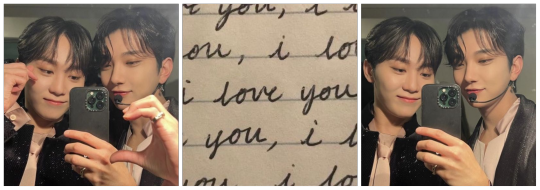 you, i
ou, i lo
i love you
you, i